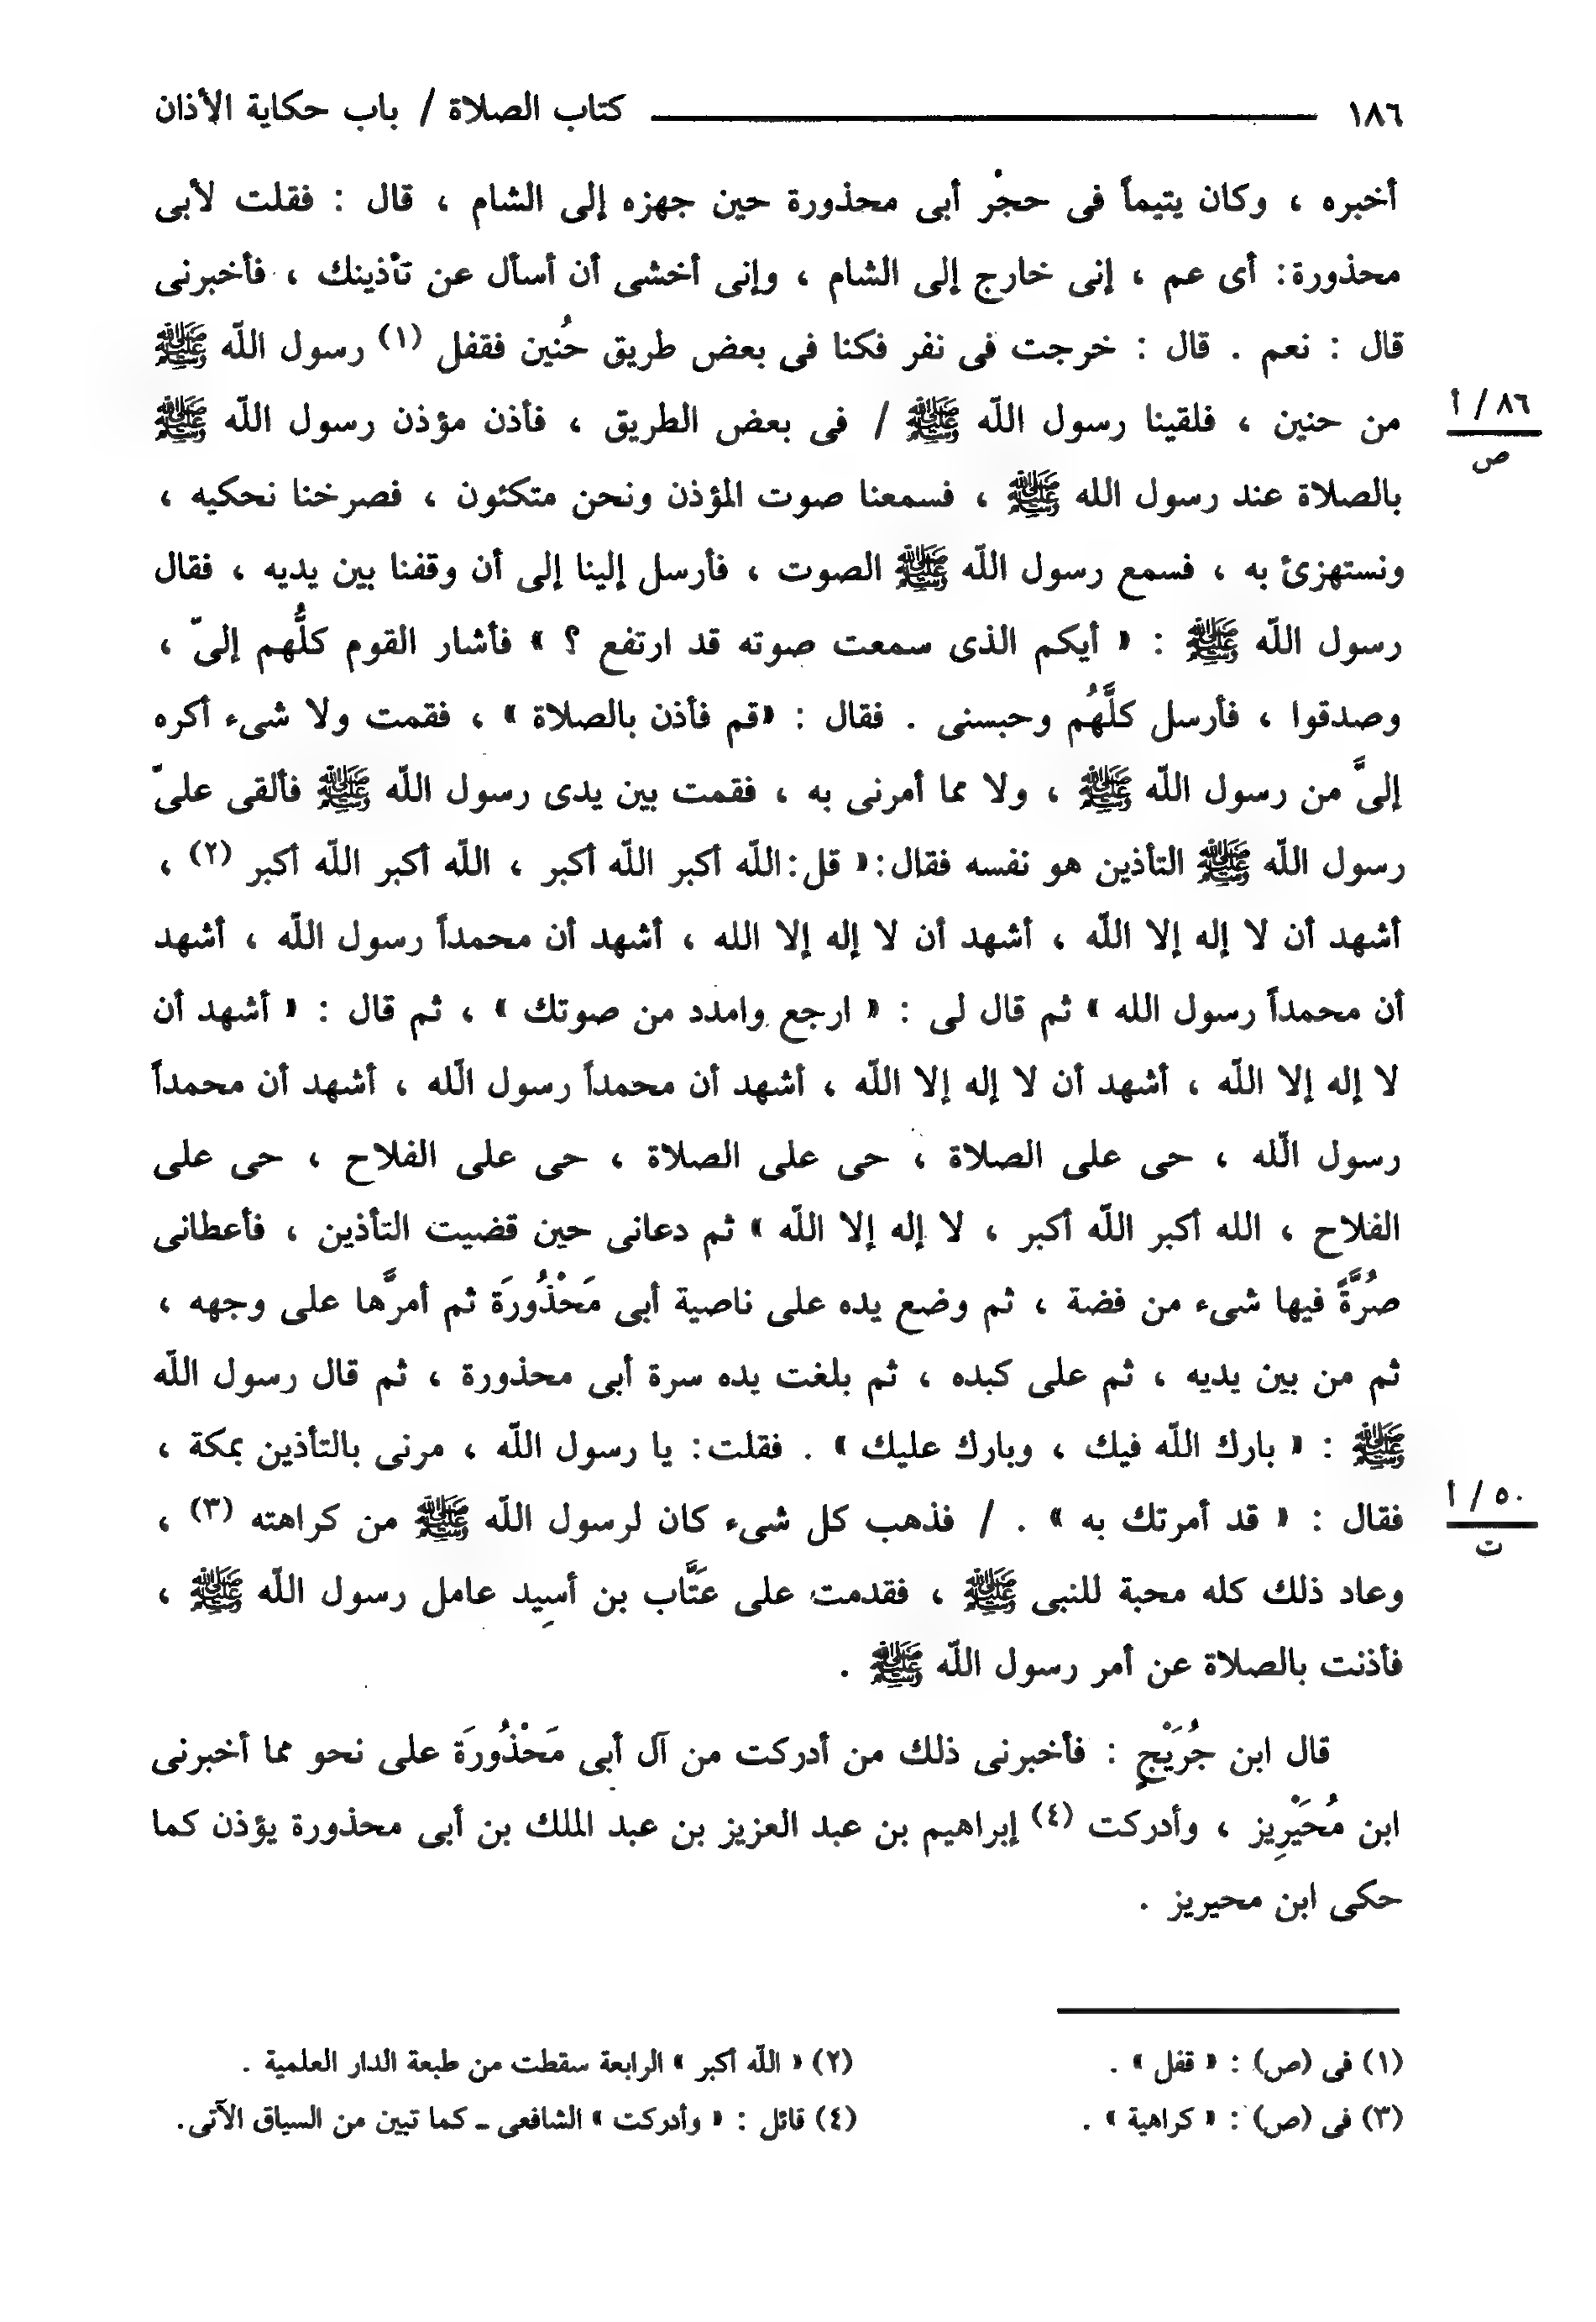 ١٨٦ كتاب الصلاة / باب حكاية الأذان
أخبره ، وكان يتيماً فى حجْر أبى محذورة حين جهزه إلى الشام ، قال : فقلت لأبى
محذورة: أى عم ، إنى خارج إلى الشام ، وإنى أخشى أن أسأل عن تأذينك ، فأخبرنى
قال : نعم . قال : خرجت فى نفر فكنا فى بعض طريق حُنين فقفل (١) رسول اللّه ﷺ
من حنين ، فلقينا رسول اللّه ﷺ / فى بعض الطريق ، فأذن مؤذن رسول اللّه ﷺ
٨٦ / أ
ص
بالصلاة عند رسول الله ﷺ ، فسمعنا صوت المؤذن ونحن متكئون ، فصرخنا نحكيه ،
ونستهزئ به ، فسمع رسول اللّه ﷺ الصوت ، فأرسل إلينا إلى أن وقفنا بين يديه ، فقال
رسول اللّه ﷺ : « أيكم الذى سمعت صوته قد ارتفع ؟ » فأشار القوم كلُّهم إلىّ ،
وصدقوا ، فأرسل كلَّهُم وحبسنى . فقال : «قم فأذن بالصلاة » ، فقمت ولا شىء أكره
إلىَّ من رسول اللّه ﷺ ، ولا مما أمرنى به ، فقمت بين يدى رسول اللّه ﷺ فألقى علىّ
رسول اللّه ﷺ التأذين هو نفسه فقال:« قل:اللّه أكبر اللّه أكبر ، اللّه أكبر اللّه أكبر (٢) ،
أشهد أن لا إله إلا اللّه ، أشهد أن لا إله إلا الله ، أشهد أن محمداً رسول اللّه ، أشهد
أن محمداً رسول الله » ثم قال لى : « ارجع وامدد من صوتك » ، ثم قال : « أشهد أن
لا إله إلا اللّه ، أشهد أن لا إله إلا اللّه ، أشهد أن محمداً رسول الّله ، أشهد أن محمداً
رسول الّله ، حى على الصلاة ، حى على الصلاة ، حى على الفلاح ، حى على
الفلاح ، الله أكبر اللّه أكبر ، لا إله إلا اللّه » ثم دعانى حين قضيت التأذين ، فأعطانى
صُرَّةً فيها شىء من فضة ، ثم وضع يده على ناصية أبى مَحْذُورَة ثم أمرَّها على وجهه ،
ثم من بين يديه ، ثم على كبده ، ثم بلغت يده سرة أبى محذورة ، ثم قال رسول اللّه
ﷺ : « بارك اللّه فيك ، وبارك عليك » . فقلت: يا رسول اللّه ، مرنى بالتأذين بمكة ،
فقال : « قد أمرتك به » . / فذهب كل شىء كان لرسول اللّه ﷺ من كراهته (٣) ،
٥٠ / أ
ت
وعاد ذلك كله محبة للنبى ﷺ ، فقدمت على عَتَّاب بن أسِيد عامل رسول اللّه ﷺ ،
فأذنت بالصلاة عن أمر رسول اللّه ﷺ .
قال ابن جُرَيْجٍ : فأخبرنى ذلك من أدركت من آل أبى مَحْذُورَة على نحو مما أخبرنى
ابن مُحَيْرِيز ، وأدركت (٤) إبراهيم بن عبد العزيز بن عبد الملك بن أبى محذورة يؤذن كما
حكى ابن محيريز .
(١) فى (ص) : « قفل » .
(٢) « اللّه أكبر » الرابعة سقطت من طبعة الدار العلمية .
(٣) فى (ص) : « كراهية » .
(٤) قائل : « وأدركت » الشافعى ـ كما تبين من السياق الآتى.